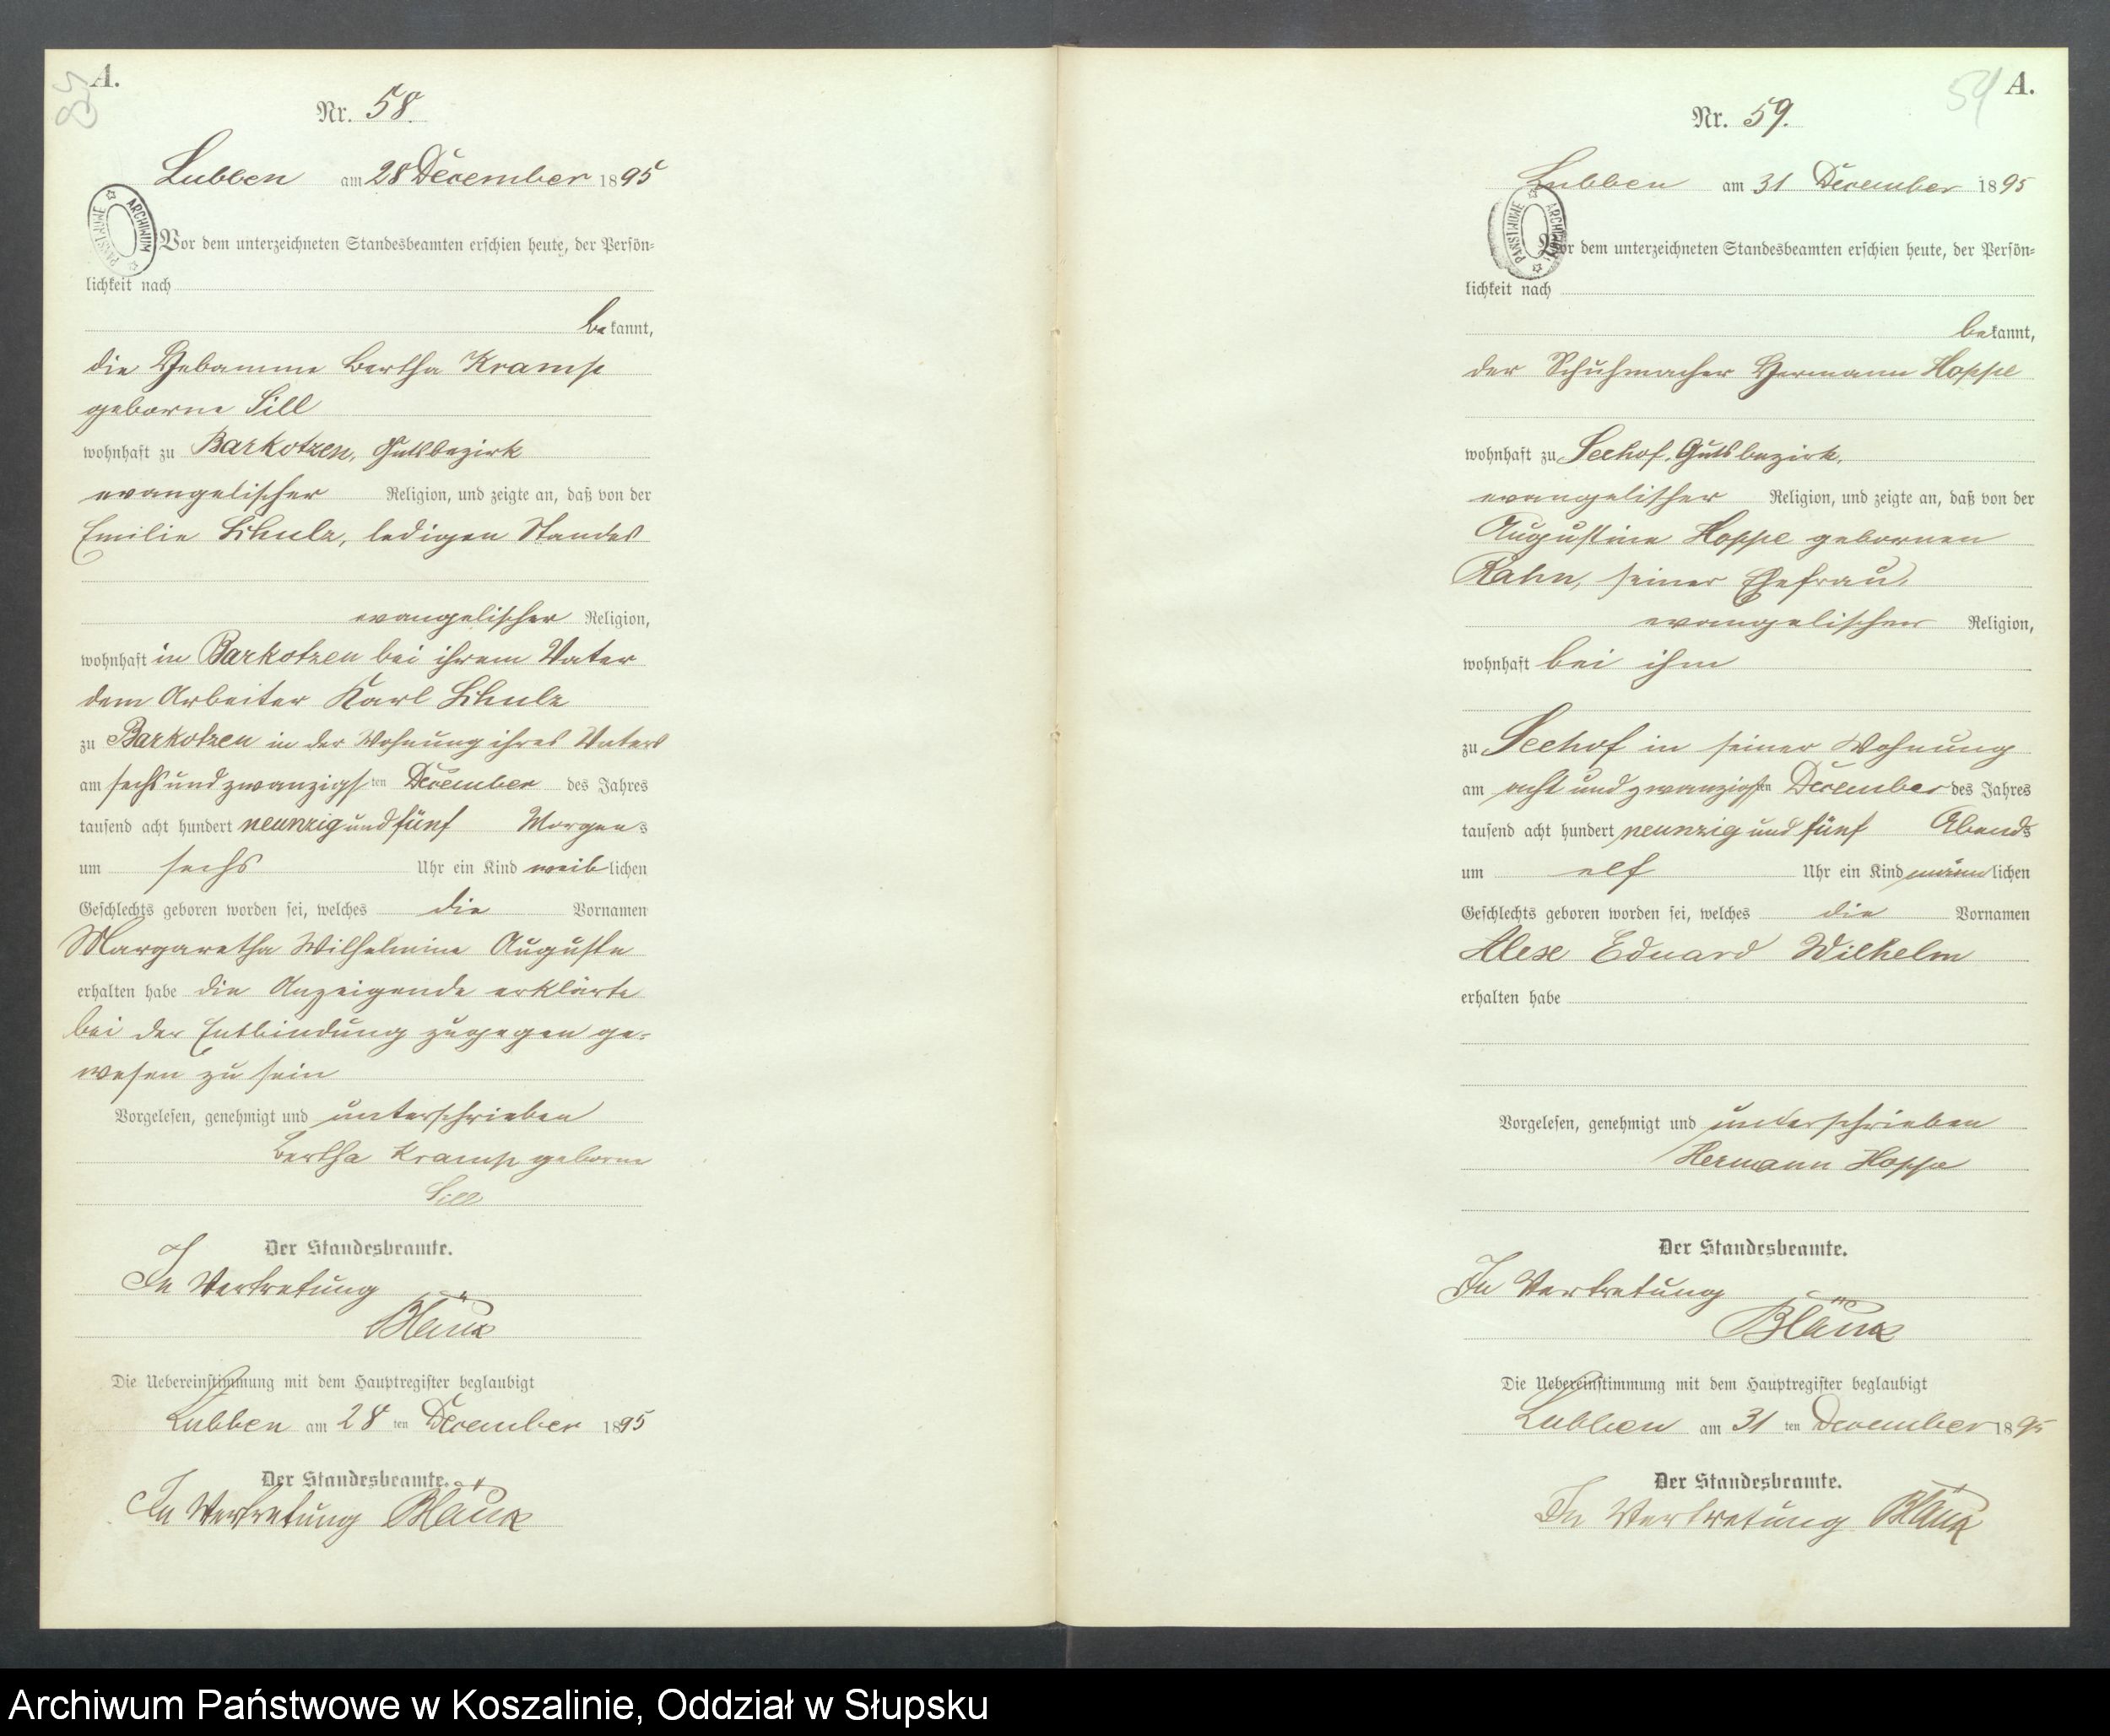 A.
Nr. 58.
Lubben am 28 December 1895
Vor dem unterzeichneten Standesbeamten erschien heute, der Persön=
lichkeit nach
bekannt,
die Hebamme Bertha Kramp
geborne Sill
wohnhaft zu Barkotzen, Gutsbezirk
evangelischer Religion, und zeigte an, daß von der
Emilie Schulz, ledigen Standes
evangelischer Religion,
wohnhaft in Barkotzen bei ihrem Vater
dem Arbeiter Karl Schulz
zu Barkotzen in der Wohnung ihres Vaters
am sechsundzwanzigsten December des Jahres
tausend acht hundert neunzig und fünf Morgens
um sechs Uhr ein Kind weiblichen
Geschlechts geboren worden sei, welches die Vornamen
Margaretha Wilhelmine Auguste
erhalten habe die Anzeigende erklärte
bei der Entbindung zugegen ge=
wesen zu sein
Vorgelesen, genehmigt und unterschrieben
Bertha Kramp geborne
Sill
Der Standesbeamte.
In Vertretung
Die Uebereinstimmung mit dem Hauptregister beglaubigt
Lubben am 28 ten December 1895
Der Standesbeamte.
In Vertretung
ARCHIWUM PAŃSTWOWE
54 A.
Nr. 59.
Lubben am 31 December 1895
Vor dem unterzeichneten Standesbeamten erschien heute, der Persön=
lichkeit nach
bekannt,
der Schuhmacher Hermann Hoppe
wohnhaft zu Seehof, Gutsbezirk,
evangelischer Religion, und zeigte an, daß von der
Augustine Hoppe gebornen
Rahn, seiner Ehefrau,
evangelischer Religion,
wohnhaft bei ihm
zu Seehof in seiner Wohnung
am acht und zwanzigsten December des Jahres
tausend acht hundert neunzig und fünf Abends
um elf Uhr ein Kind männlichen
Geschlechts geboren worden sei, welches die Vornamen
Alex Eduard Wilhelm
erhalten habe
Vorgelesen, genehmigt und unterschrieben
Hermann Hoppe
Der Standesbeamte.
In Vertretung
Die Uebereinstimmung mit dem Hauptregister beglaubigt
Lubben am 31 ten December 1895
Der Standesbeamte.
In Vertretung
ARCHIWUM PAŃSTWOWE
Archiwum Państwowe w Koszalinie, Oddział w Słupsku